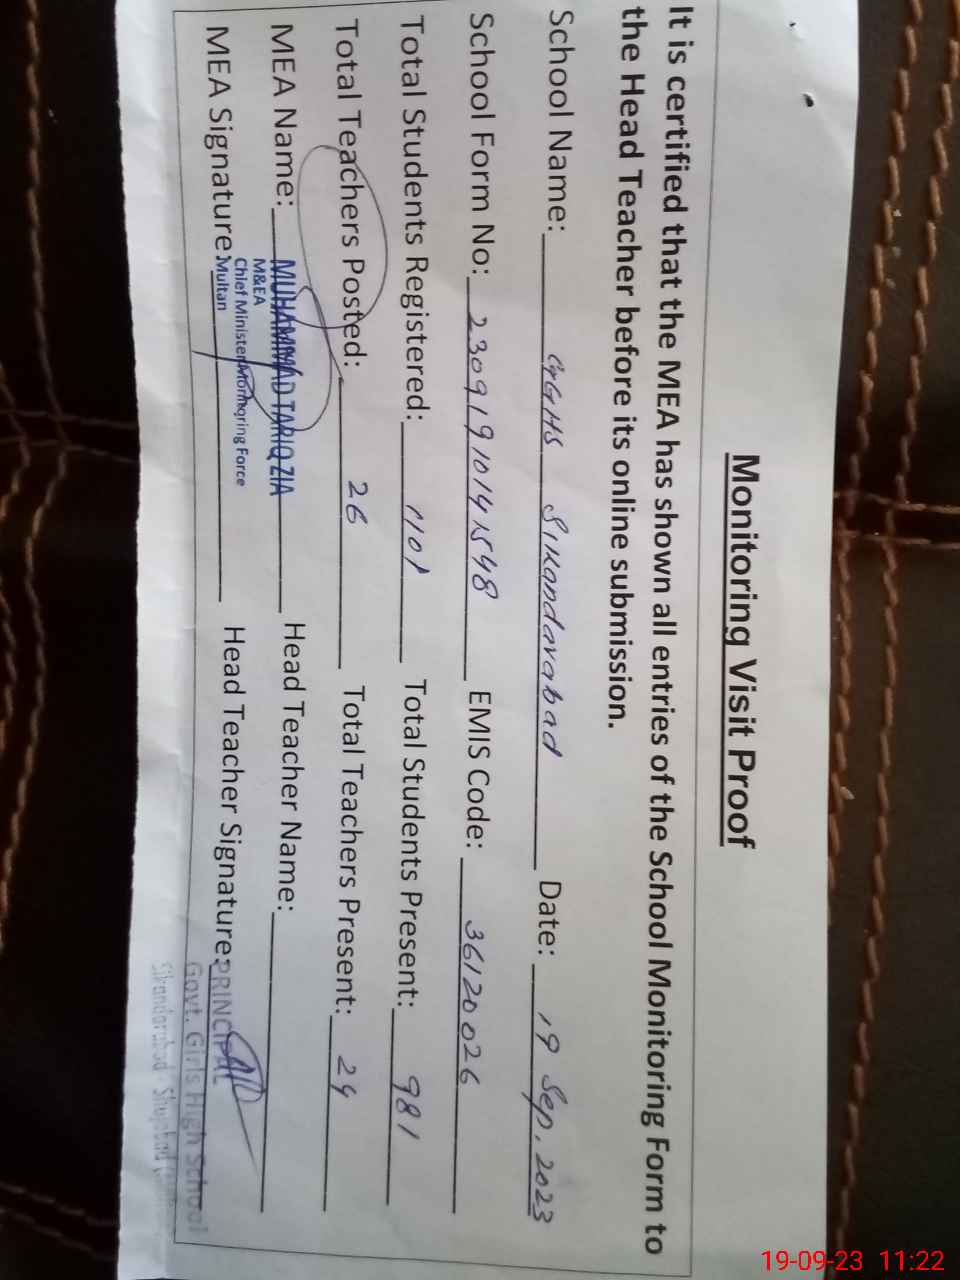 Monitoring Visit Proof
It is certified that the MEA has shown all entries of the School Monitoring Form to
the Head Teacher before its online submission.
School Name: GGHS Sikandarabad Date: 19 Sep, 2023
School Form No: 23091910141548 EMIS Code: 36120026
Total Students Registered: 1101 Total Students Present: 981
Total Teachers Posted: 26 Total Teachers Present: 24
MEA Name: MUHAMMAD TARIQ ZIA Head Teacher Name:
M&EA
Chief Minister Monitoring Force
MEA Signature: Multan Head Teacher Signature: PRINCIPAL
Govt. Girls High School
Sikandarabad Shujabad
19-09-23 11:22